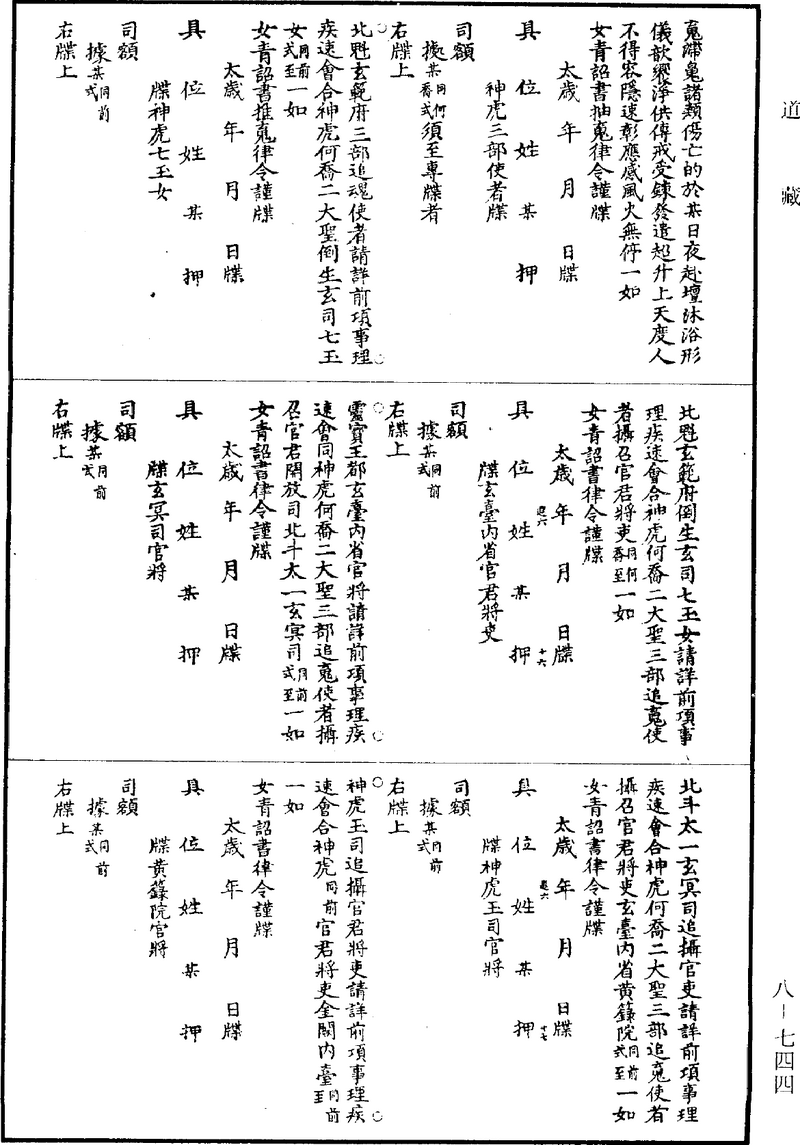 道藏
魂滯魄諸類傷亡的於某日夜赴壇沐浴形
儀歆饗淨供傳戒受鍊發遣超升上天度人
不得容隱速彰應感風火無停一如
女青詔書抽䰟律令謹牒
太歲年月日牒
具位姓某押
神虎三部使者牒
司額
據某同何喬式須至專牒者
右牒上
北魁玄範府三部追魂使者請詳前項事理
疾速會合神虎何喬二大聖倒生玄司七玉
女同前式至一如
女青詔書推䰟律令謹牒
太歲年月日牒
具位姓某押
牒神虎七玉女
司額
據某同前式
右牒上
北魁玄範府倒生玄司七玉女請詳前項事
理疾速會合神虎何喬二大聖三部追䰟使
者攝召官君將吏同何喬至一如
女青詔書律令謹牒
太歲年月日牒
具位姓某押
牒玄臺内省官君將吏
司額
據某同前式
右牒上
靈寳玉都玄臺内省官將請詳前項事理疾
速會同神虎何喬二大聖三部追䰟使者攝
召官君開放司北斗太一玄冥司同前式至一如
女青詔書律令謹牒
太歲年月日牒
具位姓某押
牒玄冥司官將
司額
據某同前式
右牒上
北斗太一玄冥司追攝官吏請詳前項事理
疾速會合神虎何喬二大聖三部追䰟使者
攝召官君將吏玄臺内省黄籙院同前式至一如
女青詔書律令謹牒
太歲年月日牒
具位姓某押
牒神虎玉司官將
司額
據某同前式
右牒上
神虎玉司追攝官君將吏請詳前項事理疾
速會合神虎同前官君將吏金闕内臺同前至
一如
女青詔書律令謹牒
太歲年月日牒
具位姓某押
牒黄籙院官將
司額
據某同前式
右牒上
八－七四四